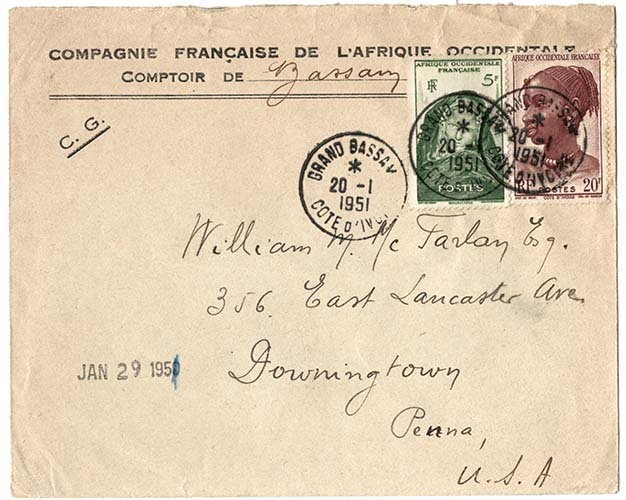 COMPAGNIE FRANÇAISE DE L'AFRIQUE OCCIDENTALE
COMPTOIR DE Bassam
C. G.
AFRIQUE OCCIDENTALE FRANÇAISE
RF
5F
POSTES
AFRIQUE OCCIDENTALE FRANÇAISE
RF POSTES 20F
CÔTE D'IVOIRE
GRAND BASSAM
*
20 -1
1951
COTE D'IVOIRE
GRAND BASSAM
*
20 -1
1951
COTE D'IVOIRE
GRAND BASSAM
*
20 -1
1951
COTE D'IVOIRE
William M. Mc Farlan Esq.
356. East Lancaster Ave
Downingtown
Penna,
U.S.A
JAN 29 1951